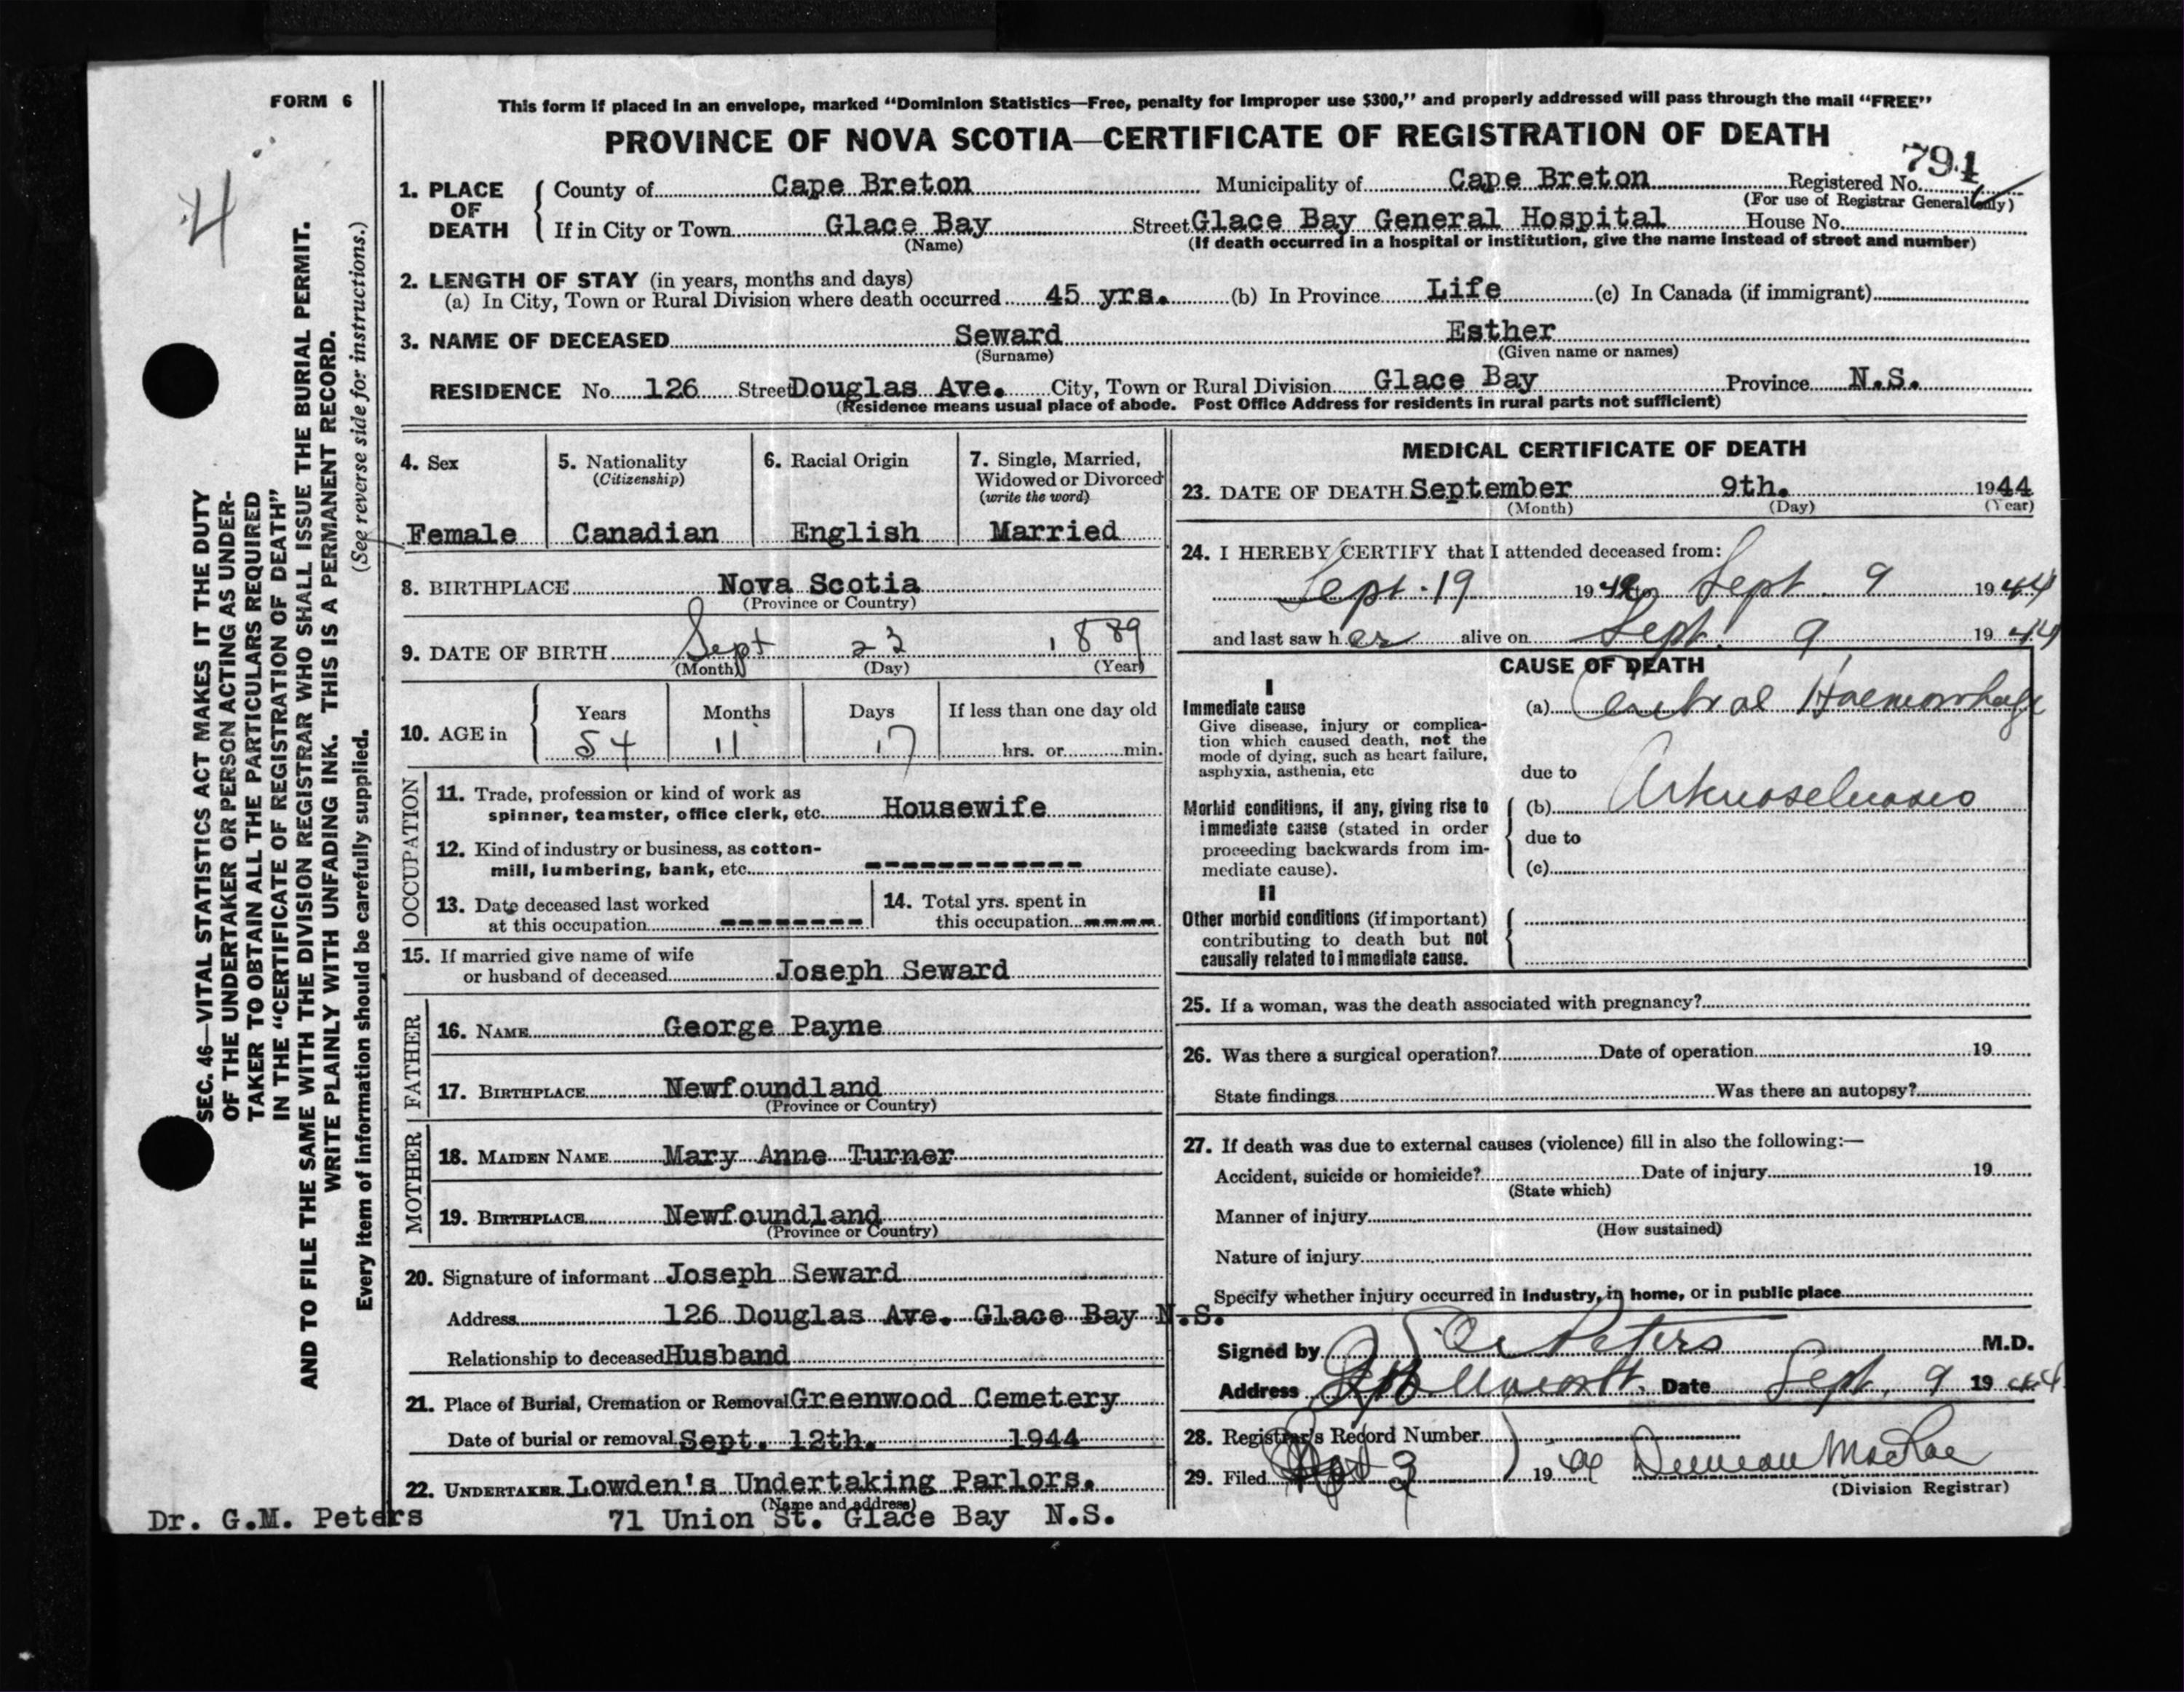 FORM 6
4
SEC. 46—VITAL STATISTICS ACT MAKES IT THE DUTY
OF THE UNDERTAKER OR PERSON ACTING AS UNDER-
TAKER TO OBTAIN ALL THE PARTICULARS REQUIRED
IN THE "CERTIFICATE OF REGISTRATION OF DEATH"
AND TO FILE THE SAME WITH THE DIVISION REGISTRAR WHO SHALL ISSUE THE BURIAL PERMIT.
WRITE PLAINLY WITH UNFADING INK. THIS IS A PERMANENT RECORD.
Every item of information should be carefully supplied. (See reverse side for instructions.)
This form if placed in an envelope, marked "Dominion Statistics—Free, penalty for improper use $300," and properly addressed will pass through the mail "FREE"
PROVINCE OF NOVA SCOTIA—CERTIFICATE OF REGISTRATION OF DEATH
791
1. PLACE OF DEATH County of Cape Breton Municipality of Cape Breton Registered No.
(For use of Registrar General only)
If in City or Town Glace Bay Street Glace Bay General Hospital House No.
(Name) (If death occurred in a hospital or institution, give the name instead of street and number)
2. LENGTH OF STAY (in years, months and days)
(a) In City, Town or Rural Division where death occurred 45 yrs. (b) In Province Life (c) In Canada (if immigrant)
3. NAME OF DECEASED Seward Esther
(Surname) (Given name or names)
RESIDENCE No. 126 Street Douglas Ave. City, Town or Rural Division Glace Bay Province N.S.
(Residence means usual place of abode. Post Office Address for residents in rural parts not sufficient)
4. Sex 5. Nationality 6. Racial Origin 7. Single, Married,
(Citizenship) Widowed or Divorced
(write the word)
Female Canadian English Married
8. BIRTHPLACE Nova Scotia
(Province or Country)
9. DATE OF BIRTH Sept 23 1889
(Month) (Day) (Year)
10. AGE in Years Months Days If less than one day old
54 11 17 hrs. or min.
OCCUPATION
11. Trade, profession or kind of work as
spinner, teamster, office clerk, etc. Housewife
12. Kind of industry or business, as cotton-
mill, lumbering, bank, etc. ------------
13. Date deceased last worked 14. Total yrs. spent in
at this occupation -------- this occupation ----
15. If married give name of wife
or husband of deceased Joseph Seward
FATHER
16. NAME George Payne
17. BIRTHPLACE Newfoundland
(Province or Country)
MOTHER
18. MAIDEN NAME Mary Anne Turner
19. BIRTHPLACE Newfoundland
(Province or Country)
20. Signature of informant Joseph Seward
Address 126 Douglas Ave. Glace Bay N.S.
Relationship to deceased Husband
21. Place of Burial, Cremation or Removal Greenwood Cemetery
Date of burial or removal Sept. 12th. 1944
22. UNDERTAKER Lowden's Undertaking Parlors.
(Name and address)
Dr. G.M. Peters 71 Union St. Glace Bay N.S.
MEDICAL CERTIFICATE OF DEATH
23. DATE OF DEATH September 9th. 1944
(Month) (Day) (Year)
24. I HEREBY CERTIFY that I attended deceased from:
Sept. 19 19 to Sept. 9 1944
and last saw her alive on Sept. 9 1944
CAUSE OF DEATH
I
Immediate cause (a) Cerebral Haemorrhage
Give disease, injury or complica-
tion which caused death, not the
mode of dying, such as heart failure,
asphyxia, asthenia, etc due to
Morbid conditions, if any, giving rise to (b) Arteriosclerosis
immediate cause (stated in order due to
proceeding backwards from im-
mediate cause). (c)
II
Other morbid conditions (if important)
contributing to death but not
causally related to immediate cause.
25. If a woman, was the death associated with pregnancy?
26. Was there a surgical operation? Date of operation 19
State findings Was there an autopsy?
27. If death was due to external causes (violence) fill in also the following:—
Accident, suicide or homicide? Date of injury 19
(State which)
Manner of injury
(How sustained)
Nature of injury
Specify whether injury occurred in industry, in home, or in public place
Signed by Peters M.D.
Address Date Sept. 9 1944
28. Registrar's Record Number
29. Filed 19 Duncan MacRae
(Division Registrar)